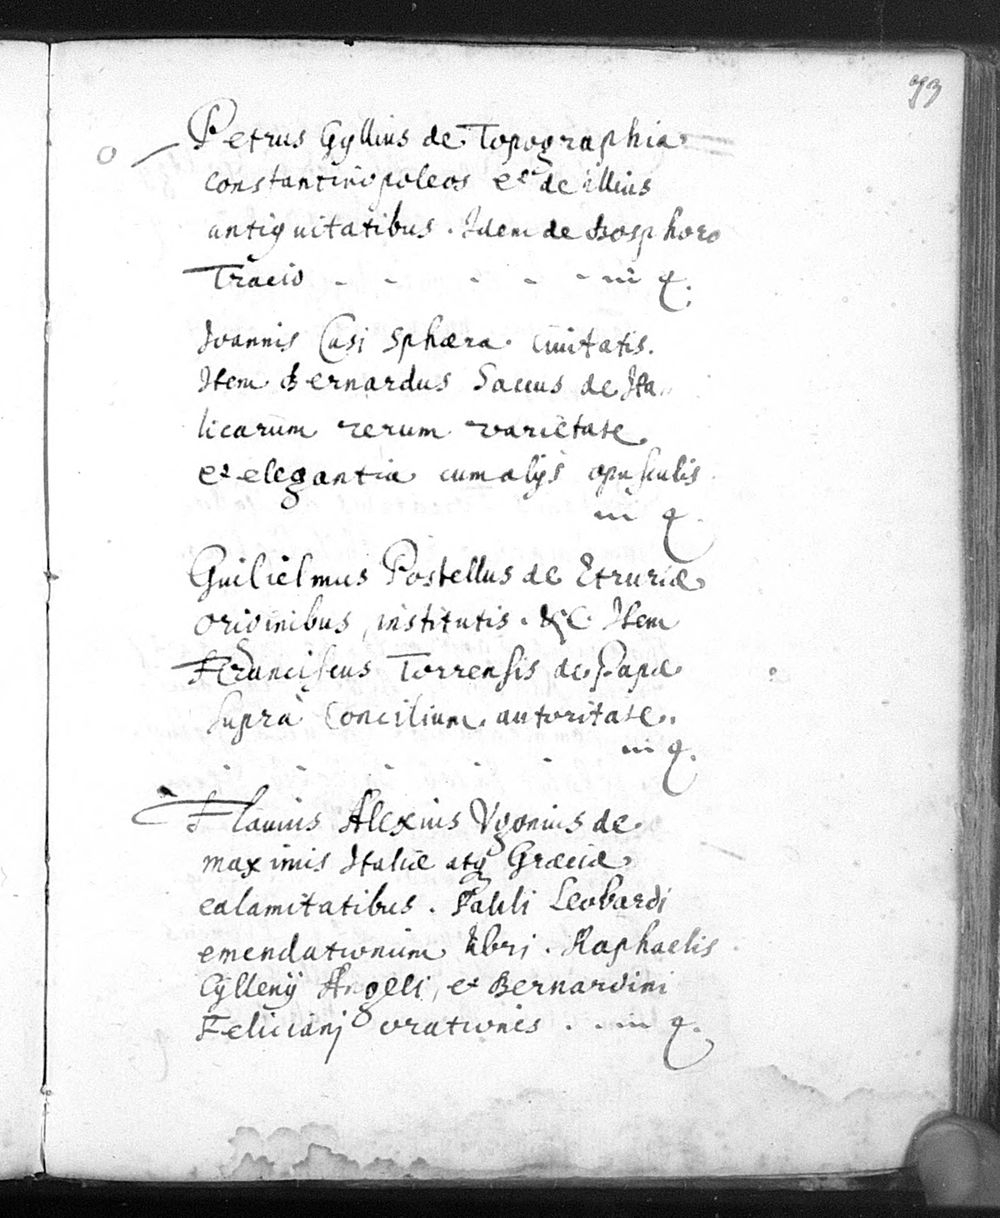 73
o Petrus Gyllius de Topographia
constantinopoleos et de illius
antiquitatibus. Idem de Bosphoro
Tracio - - - - - in 4.
Ioannis Casi Sphæra Civitatis.
Item Bernardus Saccus de Ita
licarum rerum varietate
et elegantia cum alijs opusculis
in 4.
Guilielmus Postellus de Etruriæ
originibus, institutis. &c. Item
Franciscus Torrensis de Papæ
supra Concilium autoritate.
- - - - - in 4.
Flavius Alexius Vgonius de
maximis Italiæ atq Græciæ
calamitatibus. Pauli Leopardi
emendationum libri. Raphaelis
Cyllenij Angeli, et Bernardini
Felicianj orationes . . in 4.